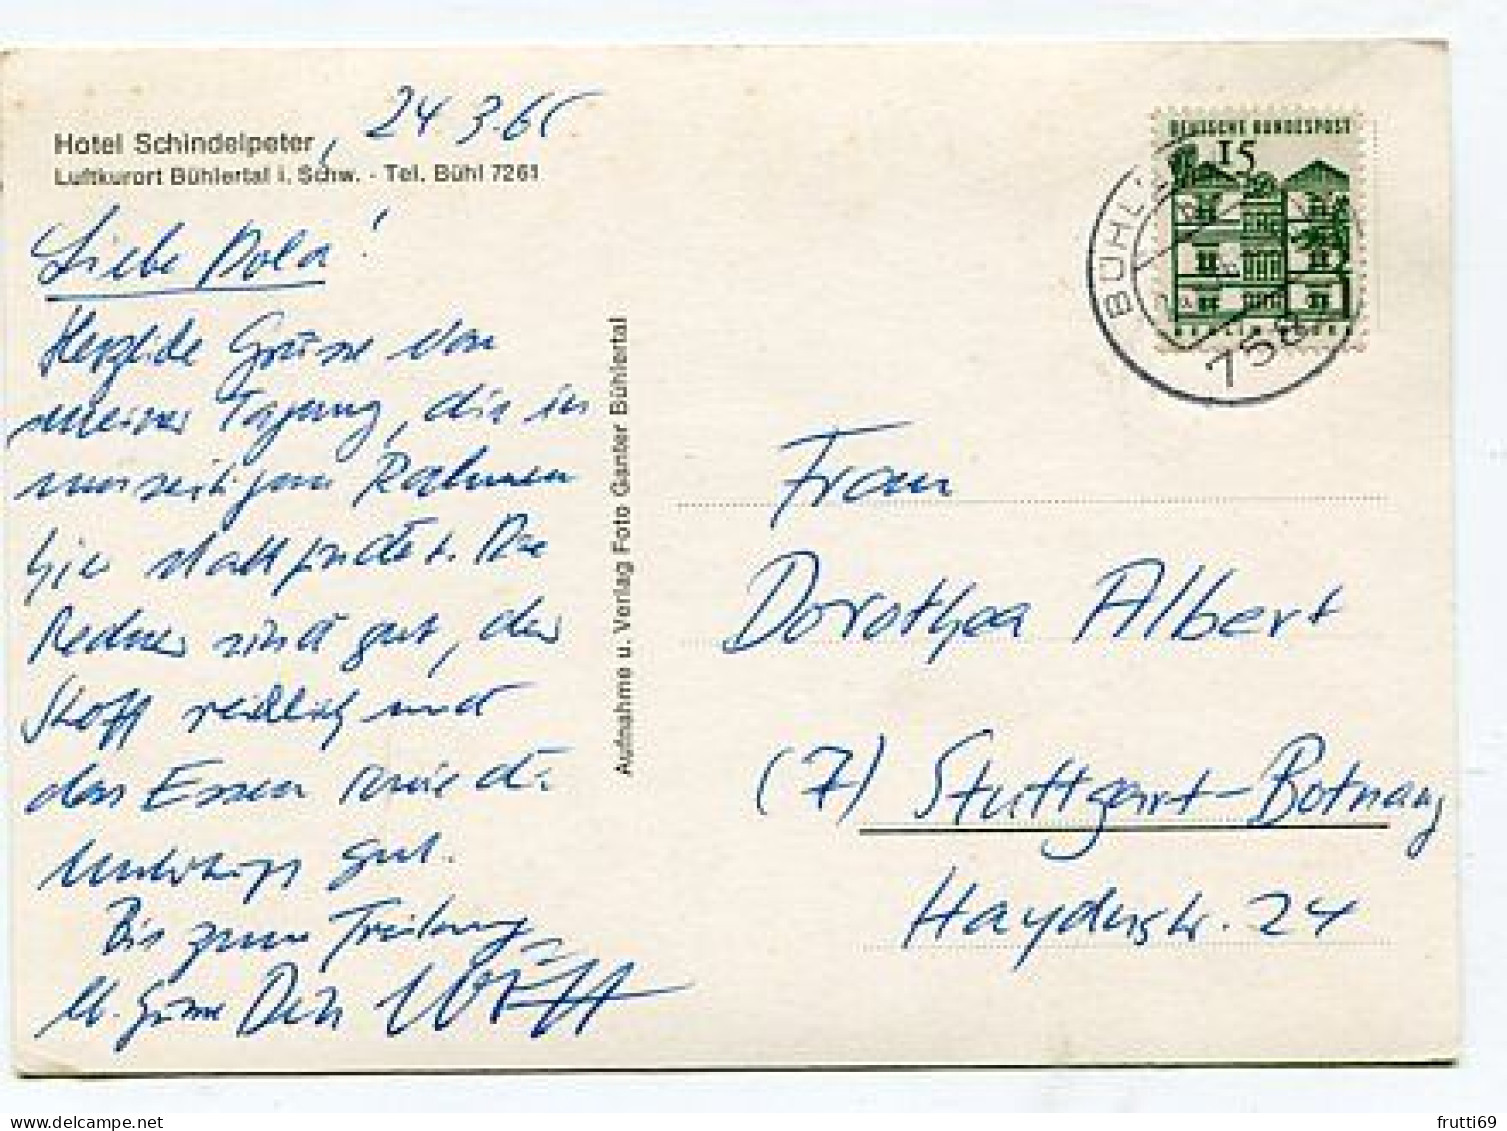 Hotel Schindelpeter, 24.3.65
Luftkurort Bühlertal i. Schw. - Tel. Bühl 7261
Liebe Dola!
Herzliche Grüsse von
meiner Tagung, die in
Rahmen
hier stattfindet. Die
Redner sind gut, der
Stoff reichlich und
das Essen sowie die
gut.
Bis zum Freitag
Dein
Aufnahme u. Verlag Foto Ganter Bühlertal
DEUTSCHE BUNDESPOST
15
BERLIN
BÜHL
758
Frau
Dorothea Albert
(7) Stuttgart-Botnang
Haydnstr. 24
delcampe.net
frutti69